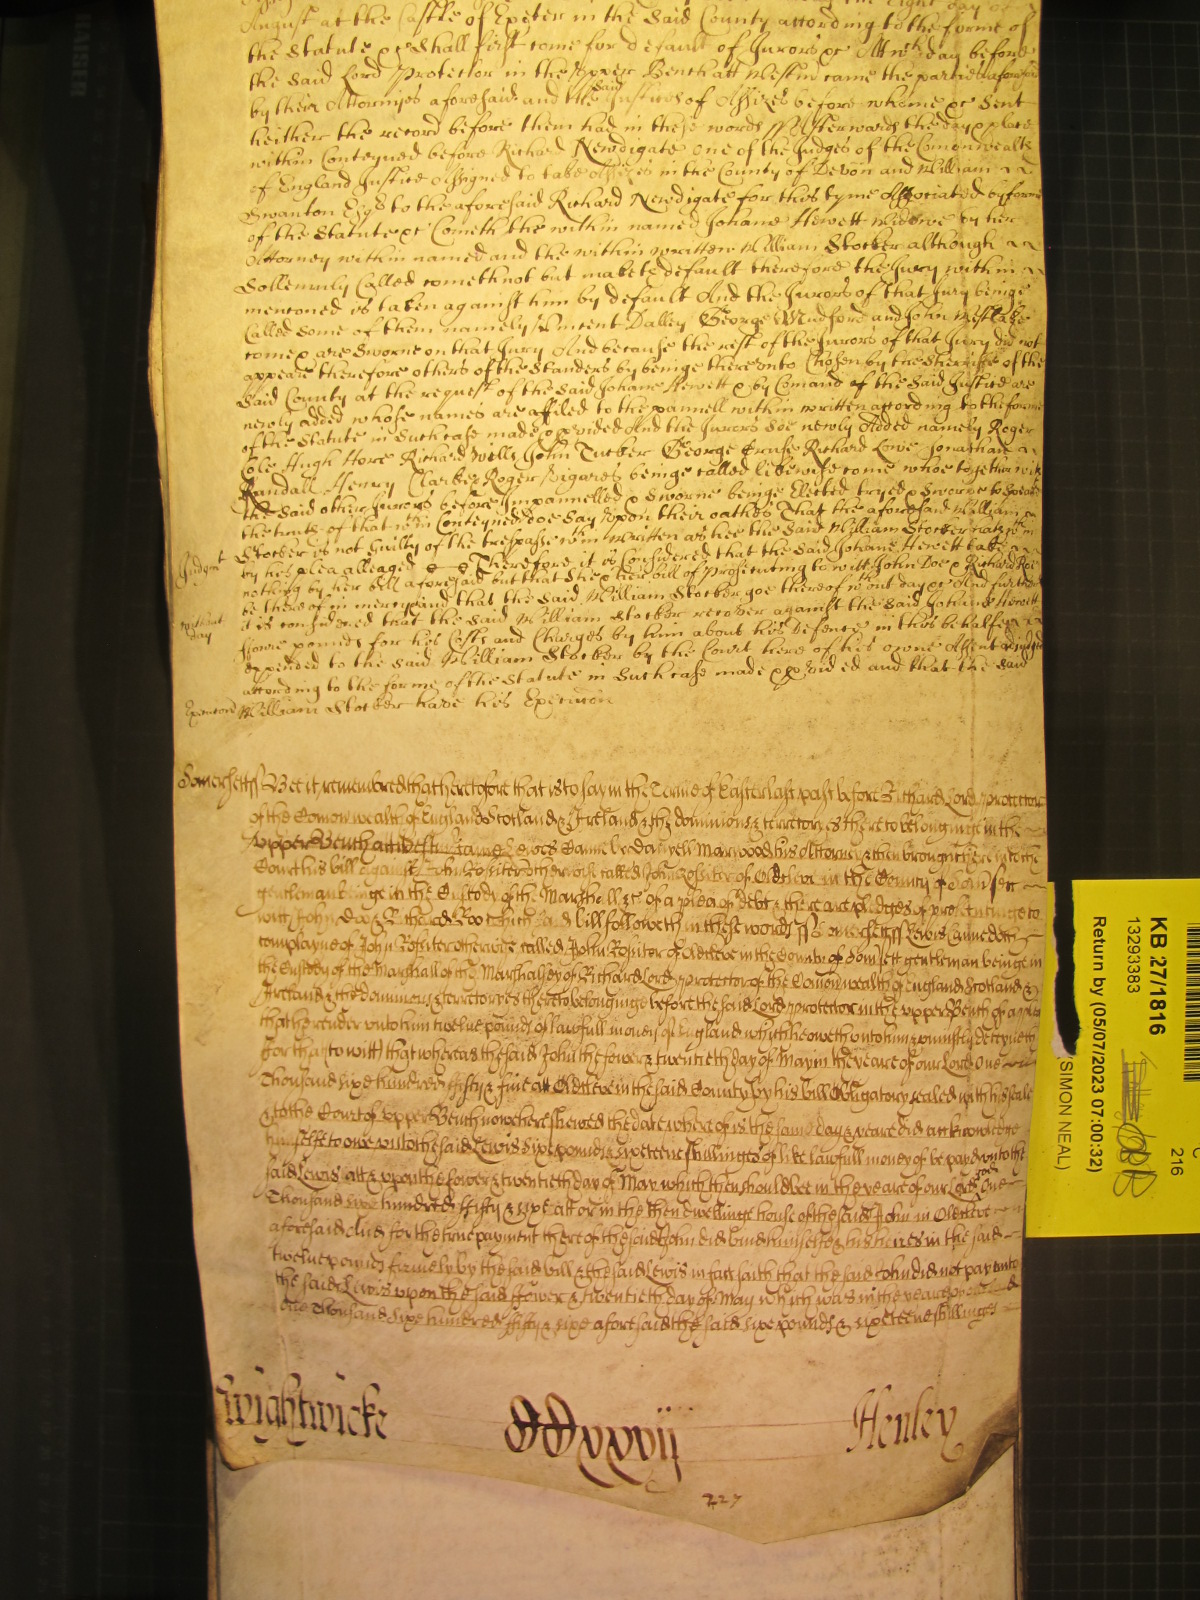 August at the Castle of Exeter in the said County according to the forme of
the Statute &c Shall first come for default of Jurors &c Att wch day before
the said Lord Protector in the Upper Bench att Westmr came the parties aforesaid
by their Attornies aforesaid and the said Justices of Assizes before whome &c sent
heither the record before them had in these words Afterwards the day & place
within Conteyned before Richard Newdigate one of the Judges of the Comonwealth
of England Justice Assigned to take Assizes in the County of Devon and William
Swanton Esqr to the aforesaid Richard Newdigate for this tyme Associated by forme
of the Statute &c Cometh the within named Johane Hewett Widdowe by her
Attorney within named and the within written William Stocker although
Sollemnly Called cometh not but maketh default therefore the Jury within
mentoned is taken against him by default And the Jurors of that Jury beinge
Called some of them namely Vincent Dalley George Mudford and John Westlake
come & are Sworne on that Jury And because the rest of the Jurors of that Jury did not
appeare therefore others of the Standers by beinge thereunto Chosen by the Sheriffe of the
said County at the request of the said Johane Hewett & by Comand of the said Justice are
newly added whose names are affiled to the pannell within written according to the forme
of the Statute in such case made & provided And the Jurors soe newly Added namely Roger
Cole Hugh Hore Richard Wills John Tucker George Cruse Richard Lowe Jonathan
Randall Henry Clarke Roger beinge called likewise come whoe together with
the said other Jurors before Impannelled & Sworne beinge Elected tryed & Sworne to speake
the truth of that wthin Conteyned doe say upon their oathes That the aforesaid William
Stocker is not guilty of the trespasse wthin written as hee the said William Stocker hath wthin
Judgmt by his plea alleaged Therefore it is Considered that the said Johane Hewett take
nothing by her bill aforesaid but that shee & her pledges of prosecuting to witt John Doe & Richard Roe
be thereof in mercy and that the said William Stocker goe thereof wthout day &c And further
without day it is considered that the said William Stocker recover against the said Johane Hewett
pounds for his Costs and Charges by him about his defence in this behalfe
expended to the said William Stocker by the Court here of his owne Assent adjudged
according to the forme of the Statute in such case made & provided and that the said
Execucon William Stocker have his Execution
Somersett ss Bee it remembred that heretofore that is to say in the Terme of Easter last past before Richard Lord Protector
of the Comonwealth of England Scotland & Ireland & the dominions & territoryes thereto belonginge in the
Upper Bench att Westmr came Lewes Canne by Marwood his Attorney & then brought here into the
Court his bill against John Rositer otherwise called John Rositer of Oldcleve in the County of Somsett
gentleman beinge in the Custody of the Marshall &c of a plea of debt & there are pledges of prosecutinge to
witt John Doe & Richard Roe which said bill followeth in these words ss Somersett ss Lewis Canne doth
complayne of John Rositer otherwise called John Rositer of Oldcleve in the County of Somsett gentleman beinge in
the Custody of the Marshall of the Marshalsey of Richard Lord Protector of the Comonwealth of England Scotland &
Ireland & the dominions & territoryes thereto belonginge before the said Lord Protector in the Upper Bench of a plea
that he render unto him twelve pounds of lawfull money of England which he oweth unto him & unjustly deteyneth
For that (to witt) that whereas the said John the fower & twentieth day of May in the yeare of our Lord One
Thousand sixe hundred fifty & five att Oldcleve in the said County by his bill obligatory sealed with his seale
& to the Court of Upper Bench now here shewed the date whereof is the same day & yeare did acknowledge
himselfe to owe unto the said Lewis sixe pounds & sixteene shillinges of like lawfull money to be payd unto the
said Lewis att & upon the fower & twentieth day of May which then should bee in the yeare of our Lord God One
Thousand sixe hundred fifty & sixe att or in the then dwellinge house of the said John in Oldcleve
aforesaid And for the true payment thereof the said John did bind himselfe & his heires in the said
twelve pounds firmely by the said bill & the said Lewis in fact saith that the said John did not pay unto
the said Lewis upon the said fower & twentieth day of May which was in the yeare of our Lord
One Thousand sixe hundred fifty & sixe aforesaid the said sixe pounds & sixteene shillinges
Wightwicke
Henley
227
KB 27/1816
13293383
216
Return by (05/07/2023 07:00:32)
(SIMON NEAL)